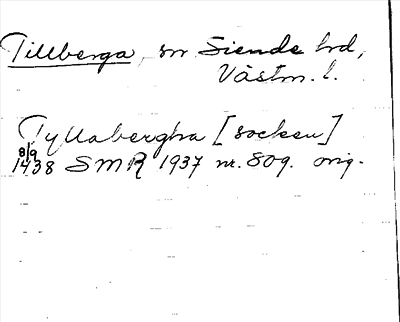 Tillberga, sn Siende hd,
Västm. l.
Tyllabergha [socken]
8/9
1438 SMR 1937 nr. 809. orig.